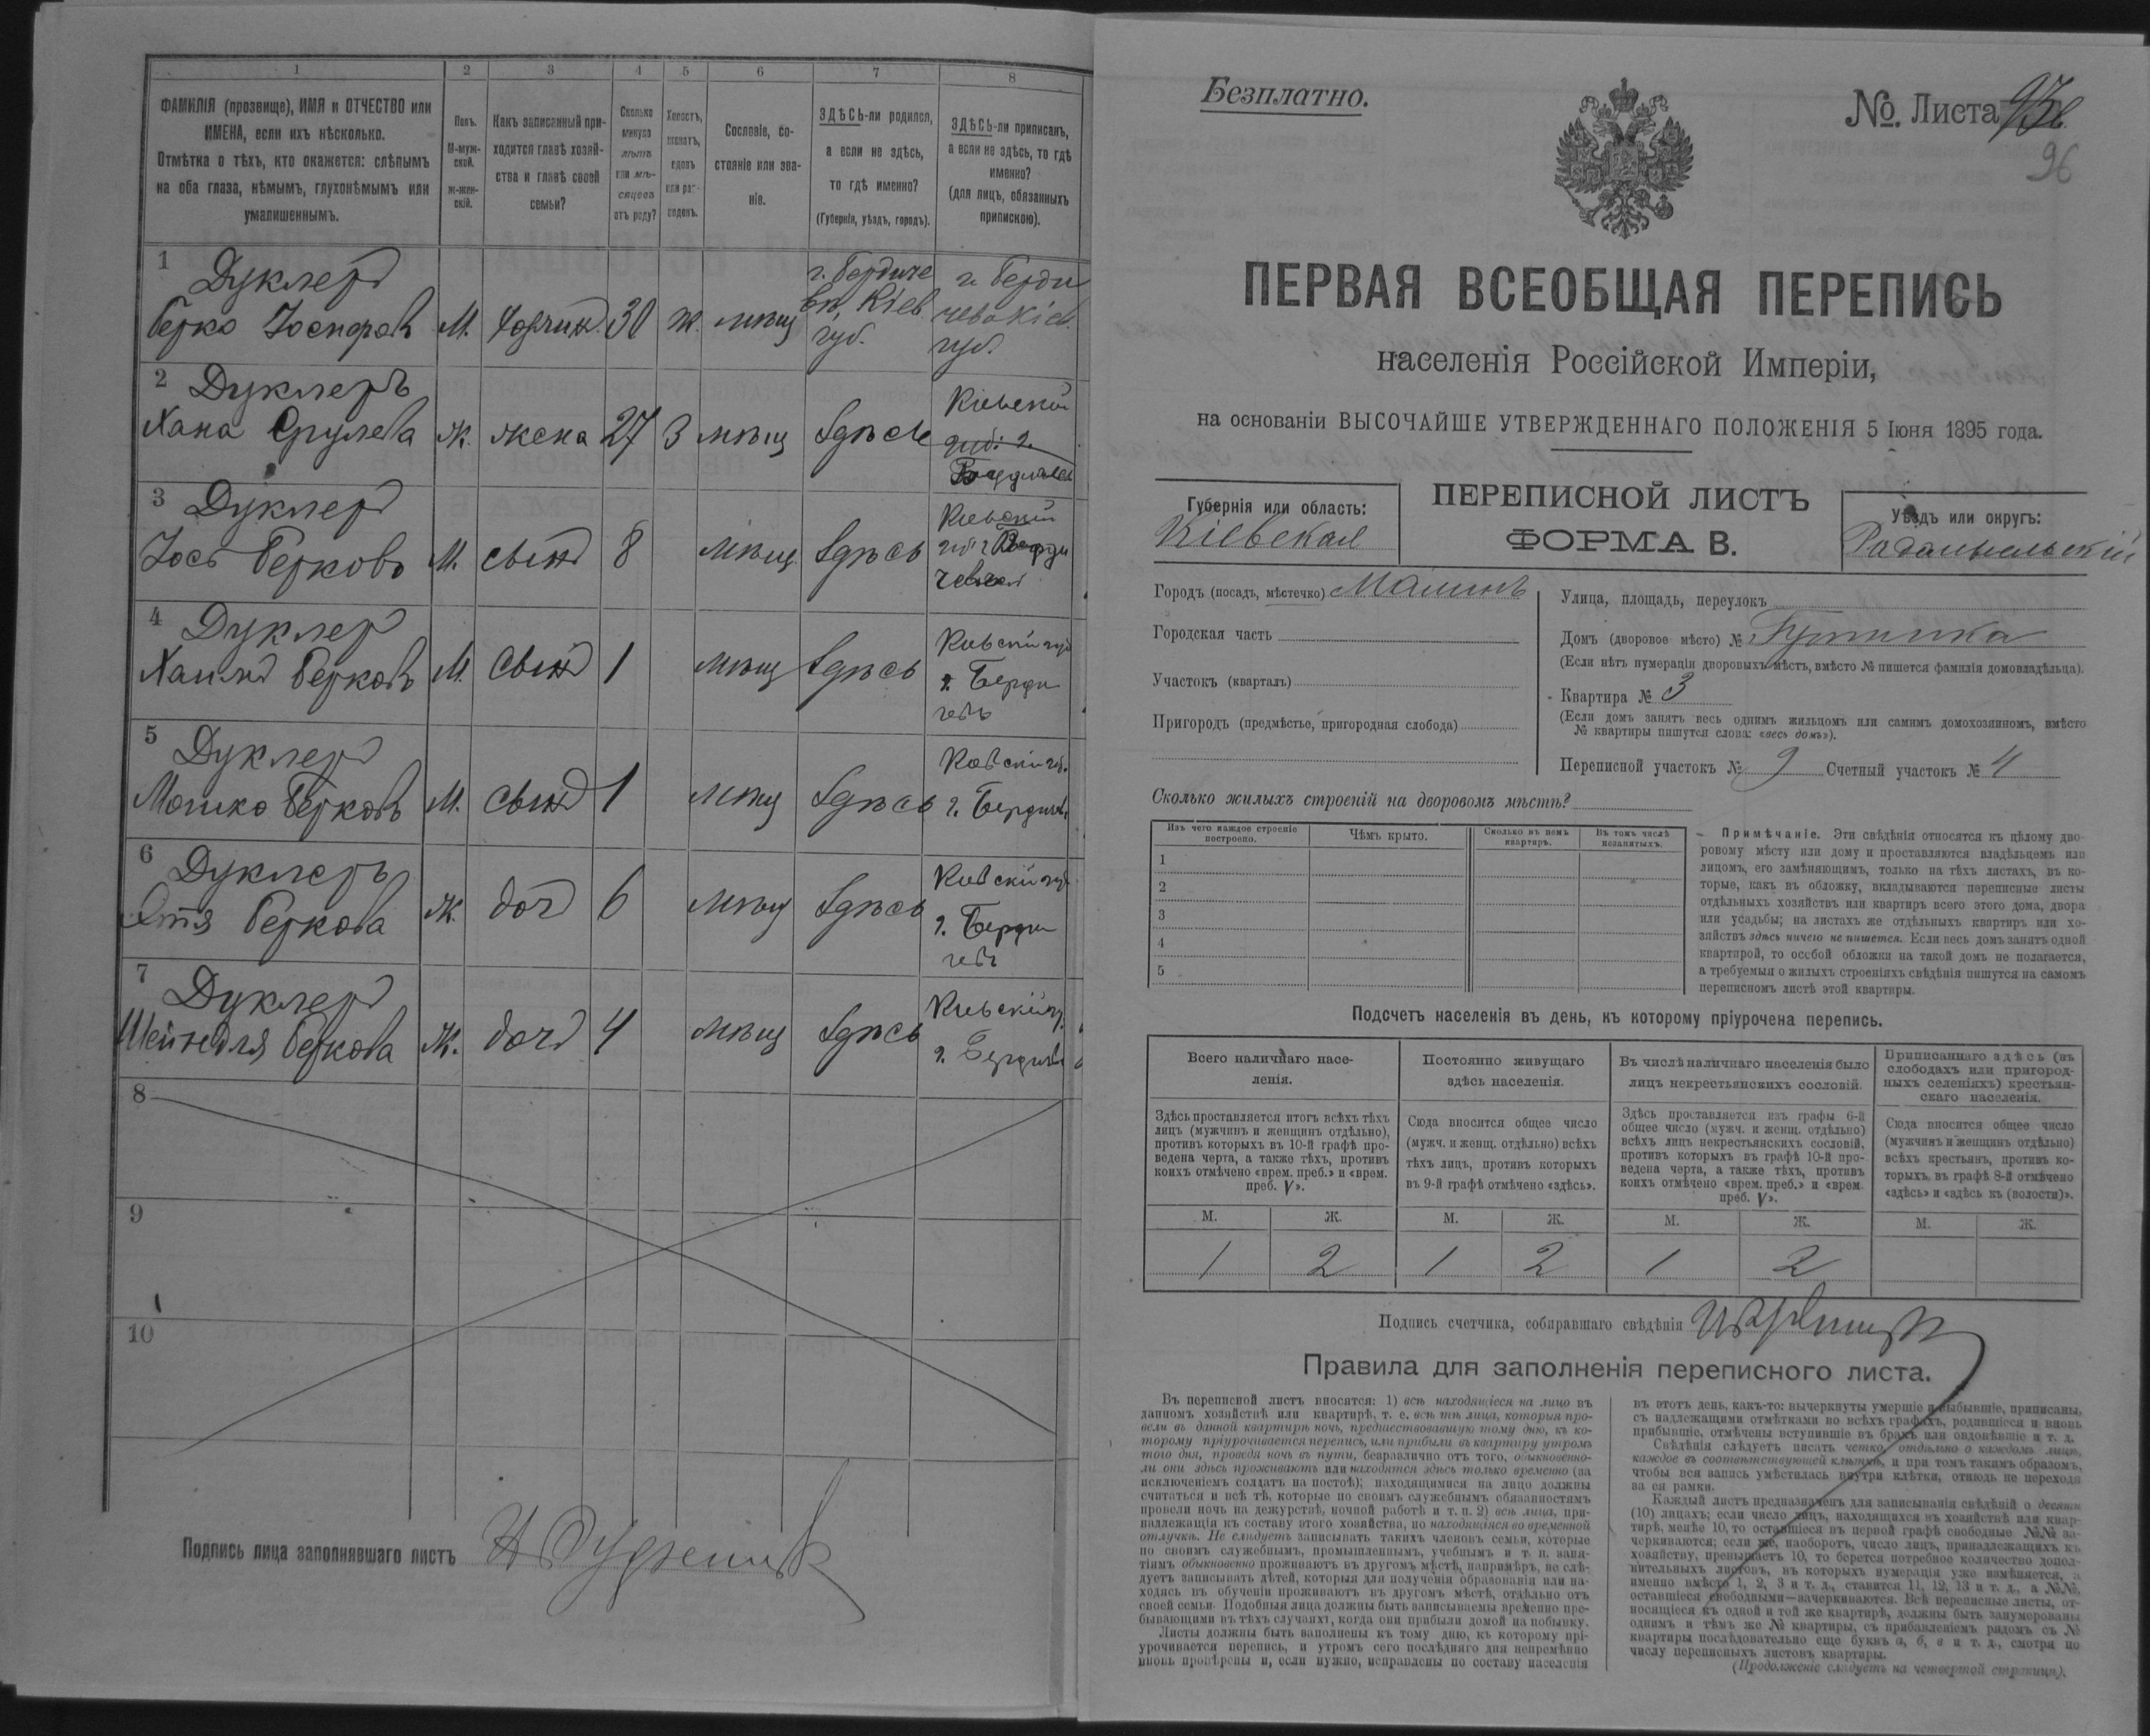 1 2 3 4 5 6 7 8
ФАМИЛІЯ (прозвище), ИМЯ и ОТЧЕСТВО или
ИМЕНА, если ихъ нѣсколько.
Отмѣтка о тѣхъ, кто окажется: слѣпымъ
на оба глаза, нѣмымъ, глухонѣмымъ или
умалишеннымъ.
Полъ.
М-муж-
ской.
ж-жен-
скій.
Какъ записанный при-
ходится главѣ хозяй-
ства и главѣ своей
семьи?
Сколько
минуло
лѣтъ
или мѣ-
сяцевъ
отъ роду?
Холостъ,
женатъ,
вдовъ
или раз-
веденъ.
Сословіе, со-
стояніе или зва-
ніе.
ЗДѢСЬ-ли родился,
а если не здѣсь,
то гдѣ именно?
(Губернія, уѣздъ, городъ).
ЗДѢСЬ-ли приписанъ,
а если не здѣсь, то гдѣ
именно?
(для лицъ, обязанныхъ
припискою).
1 Дуклеръ
Берко Іосифовъ М. 30 ж. мѣщ г. Бердиче въ, Кіев губ. г. Берди чевъ Кіев. губ.
2 Дуклеръ
Хана Срулева ж. жена 27 З мѣщ Здѣсь Кіевской губ. г. Бердичев
3 Дуклеръ
Іось Берковъ М. сынъ 8 мѣщ Здѣсь
4 Дуклеръ
Хаимъ Берковъ М. сынъ 1 мѣщ Здѣсь г. Берди чевъ
5 Дуклеръ
Мошко Берковъ М. сынъ 1 мѣщ Здѣсь г. Бердичев.
6 Дуклеръ
Беркова ж. доч 6 мѣщ Здѣсь г. Берди чевъ
7 Дуклеръ
Шейндля Беркова Ж. доч 4 мѣщ Здѣсь г. Бердичев
8
9
10
Подпись лица заполнявшаго листъ
Безплатно.
№ Листа
96
ПЕРВАЯ ВСЕОБЩАЯ ПЕРЕПИСЬ
населенія Россійской Имперіи,
на основаніи ВЫСОЧАЙШЕ УТВЕРЖДЕННАГО ПОЛОЖЕНІЯ 5 Іюня 1895 года.
Губернія или область:
Кіевская
ПЕРЕПИСНОЙ ЛИСТЪ
ФОРМА В.
Уѣздъ или округъ:
Радомысльскій
Городъ (посадъ, мѣстечко) Малинъ
Городская часть
Участокъ (кварталъ)
Пригородъ (предмѣстье, пригородная слобода)
Улица, площадь, переулокъ
Домъ (дворовое мѣсто) №
(Если нѣтъ нумераціи дворовыхъ мѣстъ, вмѣсто № пишется фамилія домовладѣльца).
Квартира № 3
(Если домъ занятъ весь однимъ жильцомъ или самимъ домохозяиномъ, вмѣсто
№ квартиры пишутся слова: «весь домъ»).
Переписной участокъ № 9 Счетный участокъ № 4
Сколько жилыхъ строеній на дворовомъ мѣстѣ?
Изъ чего каждое строеніе
построено.
Чѣмъ крыто.
Сколько въ немъ
квартиръ.
Въ томъ числѣ
незанятыхъ.
1
2
3
4
5
Примѣчаніе. Эти свѣдѣнія относятся къ цѣлому дво-
ровому мѣсту или дому и проставляются владѣльцемъ или
лицомъ, его замѣняющимъ, только на тѣхъ листахъ, въ ко-
торые, какъ въ обложку, вкладываются переписные листы
отдѣльныхъ хозяйствъ или квартиръ всего этого дома, двора
или усадьбы; на листахъ же отдѣльныхъ квартиръ или хо-
зяйствъ здѣсь ничего не пишется. Если весь домъ занятъ одной
квартирой, то особой обложки на такой домъ не полагается,
а требуемыя о жилыхъ строеніяхъ свѣдѣнія пишутся на самомъ
переписномъ листѣ этой квартиры.
Подсчетъ населенія въ день, къ которому пріурочена перепись.
Всего наличнаго насе-
ленія.
Постоянно живущаго
здѣсь населенія.
Въ числѣ наличнаго населенія было
лицъ некрестьянскихъ сословій.
Приписаннаго здѣсь (въ
слободахъ или пригород-
ныхъ селеніяхъ) крестьян-
скаго населенія.
Здѣсь проставляется итогъ всѣхъ тѣхъ
лицъ (мужчинъ и женщинъ отдѣльно),
противъ которыхъ въ 10-й графѣ про-
ведена черта, а также тѣхъ, противъ
коихъ отмѣчено «врем. преб.» и «врем.
преб. V».
Сюда вносится общее число
(мужч. и женщ. отдѣльно) всѣхъ
тѣхъ лицъ, противъ которыхъ
въ 9-й графѣ отмѣчено «здѣсь».
Здѣсь проставляется изъ графы 6-й
общее число (мужч. и женщ. отдѣльно)
всѣхъ лицъ некрестьянскихъ сословій,
противъ которыхъ въ графѣ 10-й про-
ведена черта, а также тѣхъ, противъ
коихъ отмѣчено «врем. преб.» и «врем.
преб. V».
Сюда вносится общее число
(мужчинъ и женщинъ отдѣльно)
всѣхъ крестьянъ, противъ ко-
торыхъ въ графѣ 8-й отмѣчено
«здѣсь» и «здѣсь къ (волости)».
М. Ж. М. Ж. М. Ж. М. Ж.
1 2 1 2 1 2
Подпись счетчика, собиравшаго свѣдѣнія
Правила для заполненія переписного листа.
Въ переписной листъ вносятся: 1) всѣ находящіеся на лицо въ
данномъ хозяйствѣ или квартирѣ, т. е. всѣ тѣ лица, которыя про-
вели въ данной квартирѣ ночь, предшествовавшую тому дню, къ ко-
торому пріурочивается перепись, или прибыли въ квартиру утромъ
того дня, проведя ночь въ пути, безразлично отъ того, обыкновенно-
ли они здѣсь проживаютъ или находятся здѣсь только временно (за
исключеніемъ солдатъ на постоѣ); находящимися на лицо должны
считаться и всѣ тѣ, которые по своимъ служебнымъ обязанностямъ
провели ночь на дежурствѣ, ночной работѣ и т. п. 2) всѣ лица, при-
надлежащія къ составу этого хозяйства, но находящіяся во временной
отлучкѣ. Не слѣдуетъ записывать такихъ членовъ семьи, которые
по своимъ служебнымъ, промышленнымъ, учебнымъ и т. п. заня-
тіямъ обыкновенно проживаютъ въ другомъ мѣстѣ, напримѣръ, не слѣ-
дуетъ записывать дѣтей, которыя для полученія образованія или на-
ходясь въ обученіи проживаютъ въ другомъ мѣстѣ, отдѣльно отъ
своей семьи. Подобныя лица должны быть записываемы временно пре-
бывающими въ тѣхъ случаяхъ, когда они прибыли домой на побывку.
Листы должны быть заполнены къ тому дню, къ которому прі-
урочивается перепись, и утромъ сего послѣдняго дня непремѣнно
вновь провѣрены и, если нужно, исправлены по составу населенія
въ этотъ день, какъ-то: вычеркнуты умершіе и выбывшіе, приписаны,
съ надлежащими отмѣтками во всѣхъ графахъ, родившіеся и вновь
прибывшіе, отмѣчены вступившіе въ бракъ или овдовѣвшіе и т. д.
Свѣдѣнія слѣдуетъ писать четко, отдѣльно о каждомъ лицѣ,
каждое въ соотвѣтствующей клѣткѣ, и при томъ такимъ образомъ,
чтобы вся запись умѣстилась внутри клѣтки, отнюдь не переходя
за ея рамки.
Каждый листъ предназначенъ для записыванія свѣдѣній о десяти
(10) лицахъ; если число лицъ, находящихся въ хозяйствѣ или квар-
тирѣ, менѣе 10, то оставшіеся въ первой графѣ свободные №№ за-
черкиваются; если же, наоборотъ, число лицъ, принадлежащихъ къ
хозяйству, превышаетъ 10, то берется потребное количество допол-
нительныхъ листовъ, въ которыхъ нумерація уже измѣняется, а
именно вмѣсто 1, 2, 3 и т. д., ставится 11, 12, 13 и т. д., а №№,
оставшіеся свободными—зачеркиваются. Всѣ переписные листы, от-
носящіеся къ одной и той же квартирѣ, должны быть занумерованы
однимъ и тѣмъ же № квартиры, съ прибавленіемъ рядомъ съ №
квартиры послѣдовательно еще буквъ а, б, в и т. д., смотря по
числу переписныхъ листовъ квартиры.
(Продолженіе слѣдуетъ на четвертой страницѣ).